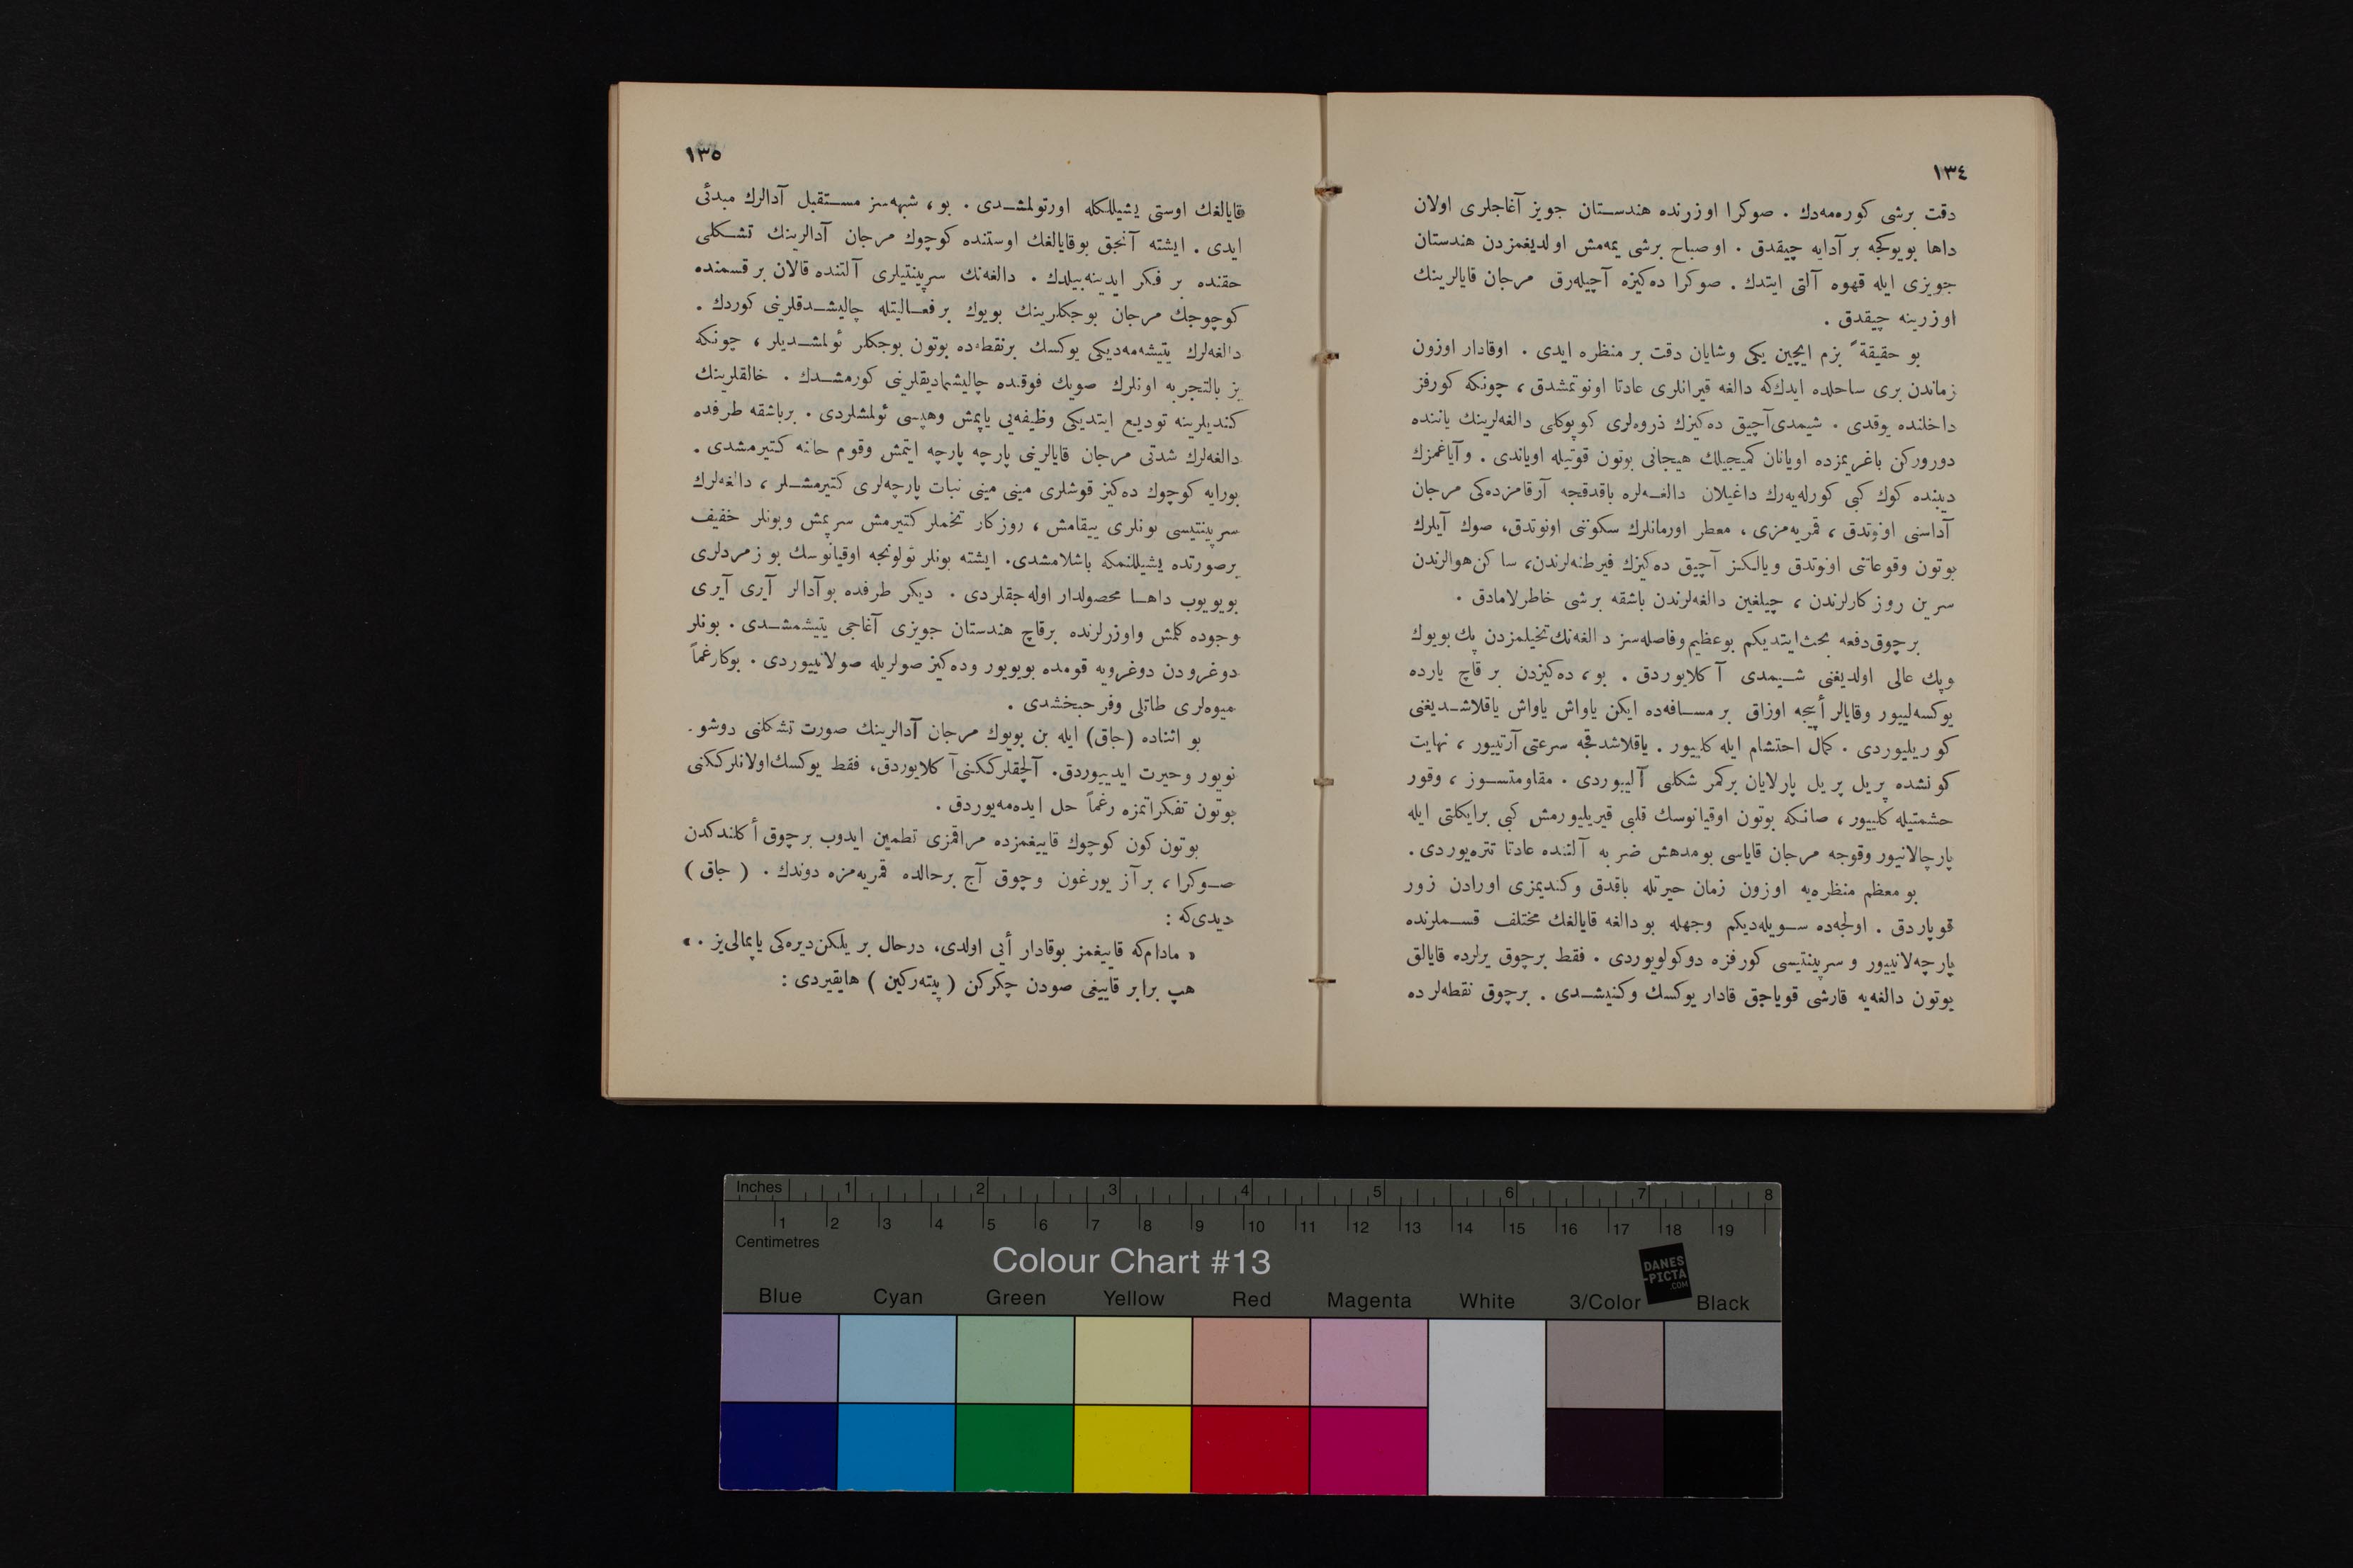 ١٣٤
دقت برشی كوره‌مه‌دك . صوكرا اوزرنده هندستان جویز آغاجلری اولان
داها بویوكجه بر آدایه چیقدق . او صباح برشی یمه‌مش اولدیغمزدن هندستان
جویزی ایله قهوه آلتی ایتدك . صوكرا ده‌كیزه آچیله‌رق مرجان قایالرینك
اوزرینه چیقدق .
بو حقیقةً بزم ایچین یكی وشایان دقت بر منظره ایدی . اوقادار اوزون
زماندن بری ساحلده ایدك‌كه دالغه قیرانلری عادتا اونوتمشدق ، چونكه كورفز
داخلنده یوقدی . شیمدی آچیق ده‌كیزك ذروه‌لری كوپوكلی دالغه‌لرینك یاننده
دوروركن باغریمزده اویانان كمیجیلك هیجانی بوتون قوتیله اویاندی . و آیاغمزك
دیبنده كوك كبی كورله‌یه‌رك داغیلان دالغه‌لره باقدقجه آرقامزده‌كی مرجان
آداسنی اونوتدق ، قمریه‌مزی ، معطر اورمانلرك سكوتنی اونوتدق، صوك آیلرك
بوتون وقوعاتنی اونوتدق ویالكز آچیق ده‌كیزك فیرطنه‌لرندن، ساكن هوالرندن
سرین روزكارلرندن ، چیلغین دالغه‌لرندن باشقه برشی خاطرلامادق .
برچوق دفعه بحث ایتدیكم بو عظیم وفاصله‌سز دالغه‌نك تخیلمزدن پك بویوك
وپك عالی اولدیغنی شیمدی آكلایوردق . بو، ده‌كیزدن بر قاچ یارده
یوكسه‌لییور وقایالر أییجه اوزاق بر مسافه‌ده ایكن یاواش یاواش یاقلاشدیغنی
كوریلیوردی . كمال احتشام ایله كلییور . یاقلاشدقجه سرعتی آرتییور ، نهایت
كونشده پریل پریل پارلایان بركمر شكلنی آلییوردی . مقاومتسوز ، وقور
حشمتیله كلییور ، صانكه بوتون اوقیانوسك قلبی قیریلیورمش كبی برایكلتی ایله
پارچالانیور وقوجه مرجان قایاسی بو مدهش ضربه آلتنده عادتا تتره‌یوردی .
بو معظم منظره‌یه اوزون زمان حیرتله باقدق وكندیمزی اورادن زور
قوپاردق . اولجه‌ده سویله‌دیكم وجهله بو دالغه قایالغك مختلف قسملرنده
پارچه‌لانییور و سرپینتیسی كورفزه دوكولویوردی . فقط برچوق یرلرده قایالق
بوتون دالغه‌یه قارشی قویاجق قادار یوكسك وكنیشدی . برچوق نقطه‌لرده
١٣٥
قایالغك اوستی یشیللكله اورتولمشدی . بو ، شبهه‌سز مستقبل آدالرك مبدئی
ایدی . ایشته آنجق بو قایالغك اوستنده كوچوك مرجان آدالرینك تشكلی
حقنده بر فكر ایدینه‌بیلدك . دالغه‌نك سرپینتیلری آلتنده قالان بر قسمنده
كوچوجك مرجان بوجكلرینك بویوك بر فعالیتله چالیشدقلرینی كوردك .
دالغه‌لرك یتیشه‌مه‌دیكی یوكسك برنقطه‌ده بوتون بوجكلر ئولمشدیلر ، چونكه
بز بالتجربه اونلرك صویك فوقنده چالیشمادیقلرینی كورمشدك . خالقلرینك
كندیلرینه تودیع ایتدیكی وظیفه‌یی یاپمش وهپسی ئولمشلردی . برباشقه طرفده
دالغه‌لرك شدتی مرجان قایالرینی پارچه پارچه ایتمش وقوم حالنه كتیرمشدی .
بورایه كوچوك ده‌كیز قوشلری مینی مینی نبات پارچه‌لری كتیرمشلر ، دالغه‌لرك
سرپینتیسی بونلری ییقامش ، روزكار تخملر كتیرمش سرپمش وبونلر خفیف
برصورتده یشیللنمكه باشلامشدی. ایشته بونلر ئولونجه اوقیانوسك بو زمردلری
بویویوب داها محصولدار اوله‌جقلردی . دیكر طرفده بو آدالر آیری آیری
وجوده كلمش واوزرلرنده برقاچ هندستان جویزی آغاجی یتیشمشدی . بونلر
دوغرودن دوغرویه قومده بویویور وده‌كیز صولریله صولانییوردی . بوكا رغماً
میوه‌لری طاتلی وفرحبخشدی .
بو اثناده (جاق) ایله بن بویوك مرجان آدالرینك صورت تشكلنی دوشو-
نویور وحیرت ایدییوردق. آلچقلرككنی آكلایوردق، فقط یوكسك اولانلرككنی
بوتون تفكراتمزه رغماً حل ایده‌مه‌یوردق .
بوتون كون كوچوك قاییغمزده مراقمزی تطمین ایدوب برچوق أكلندكدن
صوكرا ، بر آز یورغون وچوق آج برحالده قمریه‌مزه دوندك . ( جاق )
دیدی‌كه :
« مادام‌كه قاییغمز بوقادار أیی اولدی، درحال بر یلكن دیره‌كی یاپمالی‌یز . »
هپ برابر قاییغی صودن چكركن ( پیته‌ركین ) هایقیردی :
Inches 1 2 3 4 5 6 7 8
1 2 3 4 5 6 7 8 9 10 11 12 13 14 15 16 17 18 19
Centimetres
Colour Chart #13
DANES
-PICTA
.COM
Blue Cyan Green Yellow Red Magenta White 3/Color Black